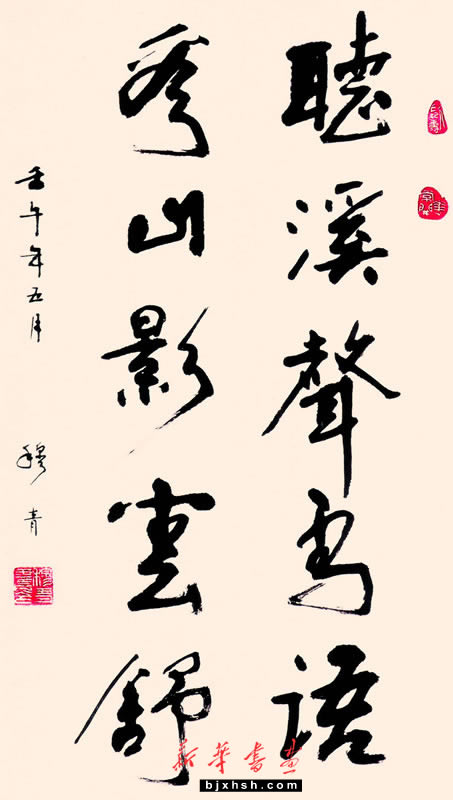 聽溪聲鳥語
看山影雲舒
壬午年五月
穆青
新華書畫
bjxhsh.com